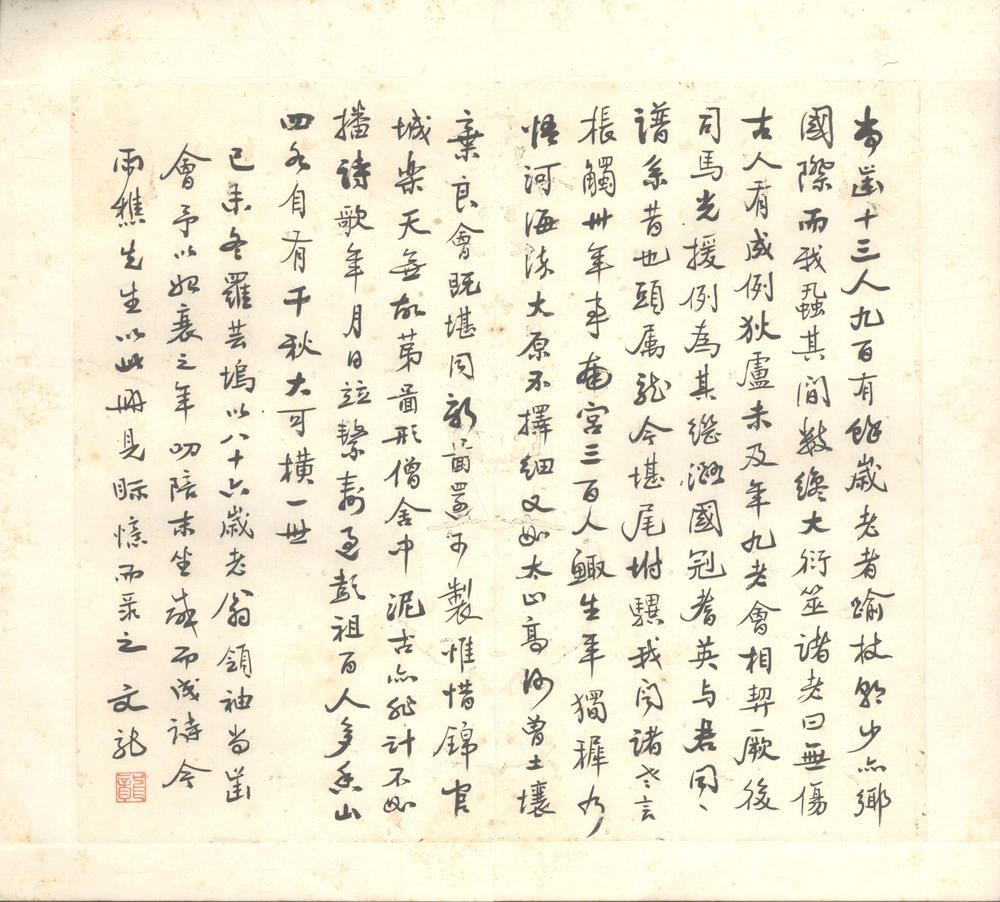 尚齒十三人九百有餘歲老者踰杖朝少亦鄉
國際而我蝨其間數纔大衍筮諸老曰無傷
古人有成例狄盧未及年九老會相契厥後
司馬光援例為其繼潞國冠耆英与君同〻
譜系昔也頭屬龍今堪尾坿驥我聞諸老言
棖觸卅年事南宮三百人鯫生年獨穉乃
悟河海深大原不擇細又如太山高何曾土壤
棄良會既堪同新圖還可製惟惜錦官
城樂天無故第圖形僧舍中泥古亦非計不如
播詩歌年月日竝繫壽過彭祖百人多香山
四各自有千秋大可橫一世
己未冬羅芸塢以八十六歲老翁領袖尚齒
會予以始衰之年叨陪末坐感而成詩今
雨樵先生以此冊見眎憶而录之 文龍